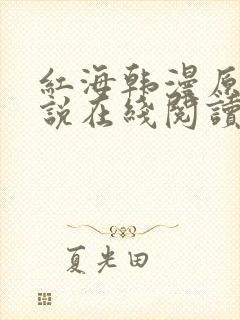 紅海韩漫原
說在綫閱讀
夏光田